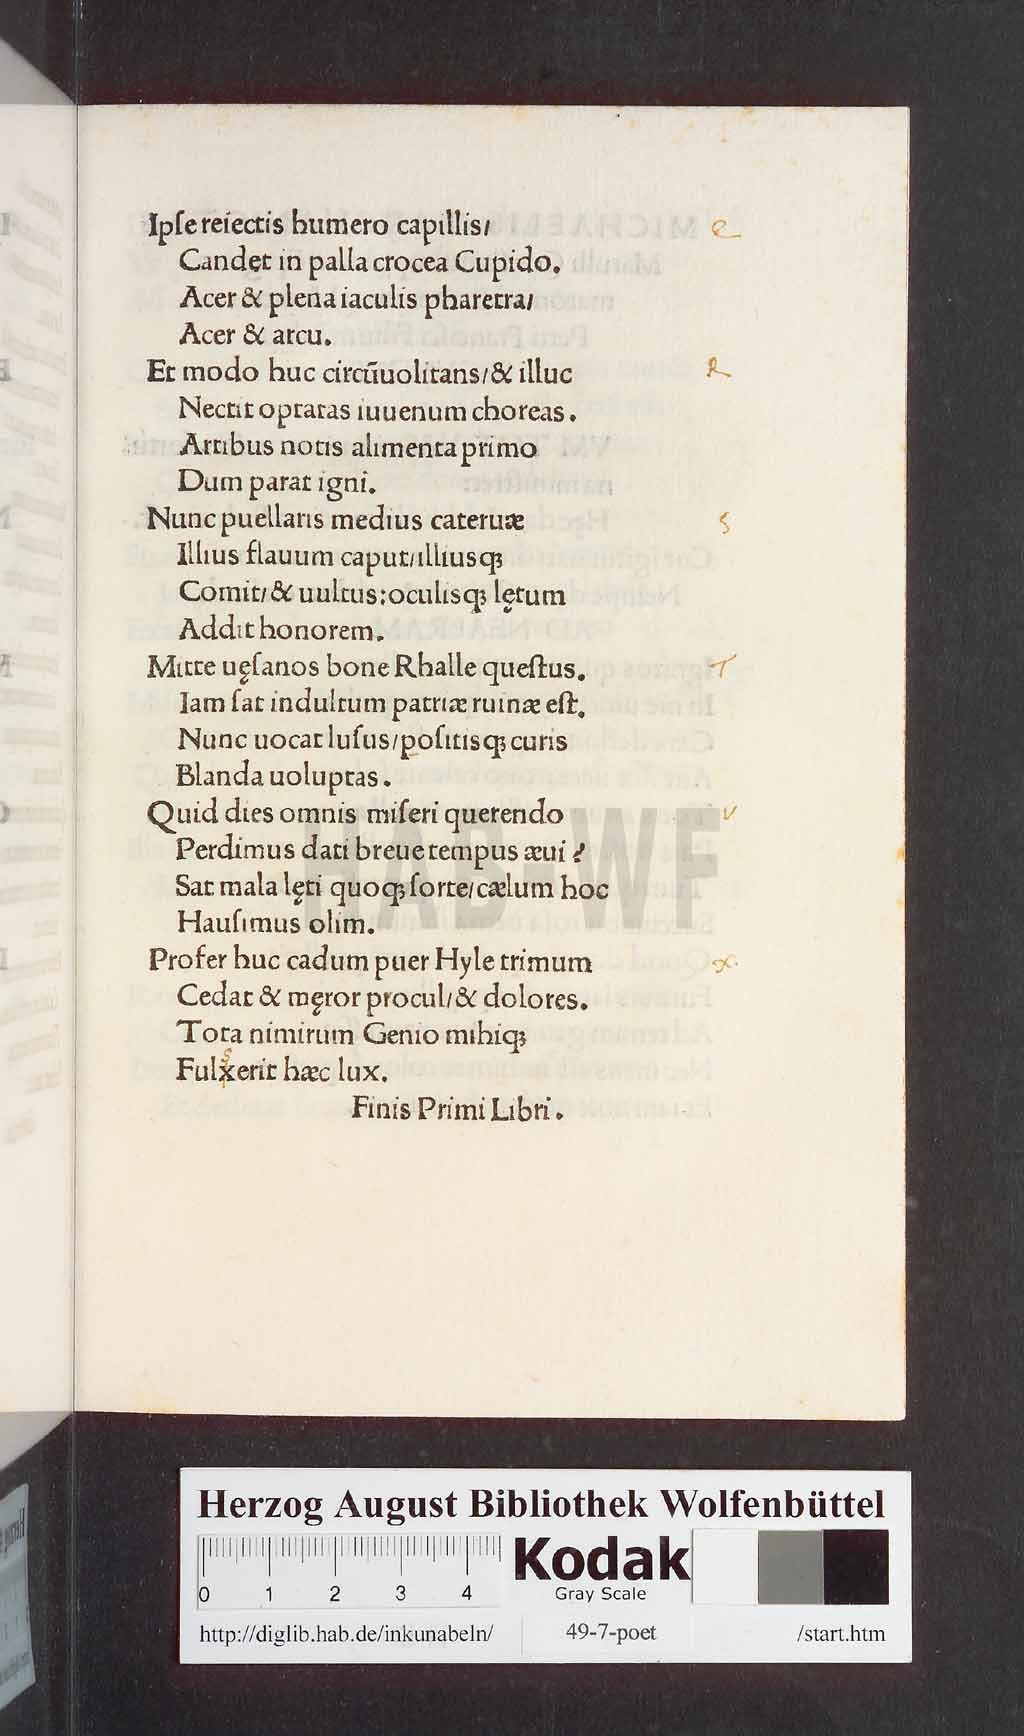 Ipſe reiectis humero capillis/ e
Candet in palla crocea Cupido.
Acer & plena iaculis pharetra/
Acer & arcu.
Et modo huc circūuolitans/& illuc R
Nectit optatas iuuenum choreas.
Artibus notis alimenta primo
Dum parat igni.
Nunc puellaris medius cateruæ S
Illius flauum caput/illiusqꝫ
Comit/& uultus:oculisqꝫ lętum
Addit honorem.
Mitte uęſanos bone Rhalle queſtus. T
Iam ſat indultum patriæ ruinæ eſt.
Nunc uocat luſus/poſitisqꝫ curis
Blanda uoluptas.
Quid dies omnis miſeri querendo v
Perdimus dati breue tempus æui ?
Sat mala lęti quoqꝫ ſorte/cælum hoc
Hauſimus olim.
Profer huc cadum puer Hyle trimum x.
Cedat & męror procul/& dolores.
Tota nimirum Genio mihiqꝫ
s
Fulxerit hæc lux.
Finis Primi Libri.
HAB-WF
Herzog August Bibliothek Wolfenbüttel
0 1 2 3 4
Kodak
Gray Scale
http://diglib.hab.de/inkunabeln/ 49-7-poet /start.htm